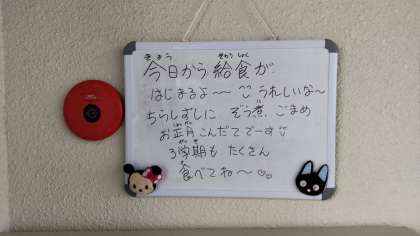 きょう きゅうしょく
今日から給食が
はじまるよ〜 うれしいな〜
ちらしずしに ぞう煮、ごまめ
お正月こんだてでーす
3学期も たくさん
食べてね〜